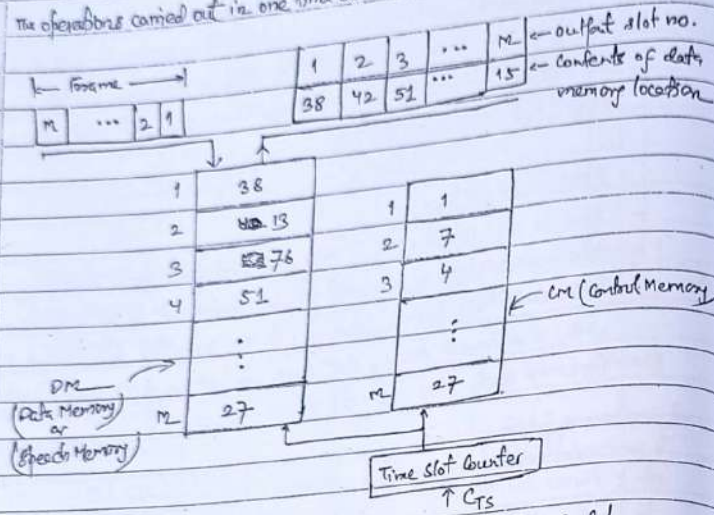 The operations carried out in one time
← Frame →
M ... 2 1
1 2 3 ... M ← output slot no.
38 42 51 ... 15 ← contents of data
memory location
1 38
2 13
3 76
4 51
⋮
M 27
1 1
2 7
3 4
⋮
M 27
← CM (Control Memory
DM
(Data Memory)
or
(Speech Memory)
Time Slot Counter
↑ CTS